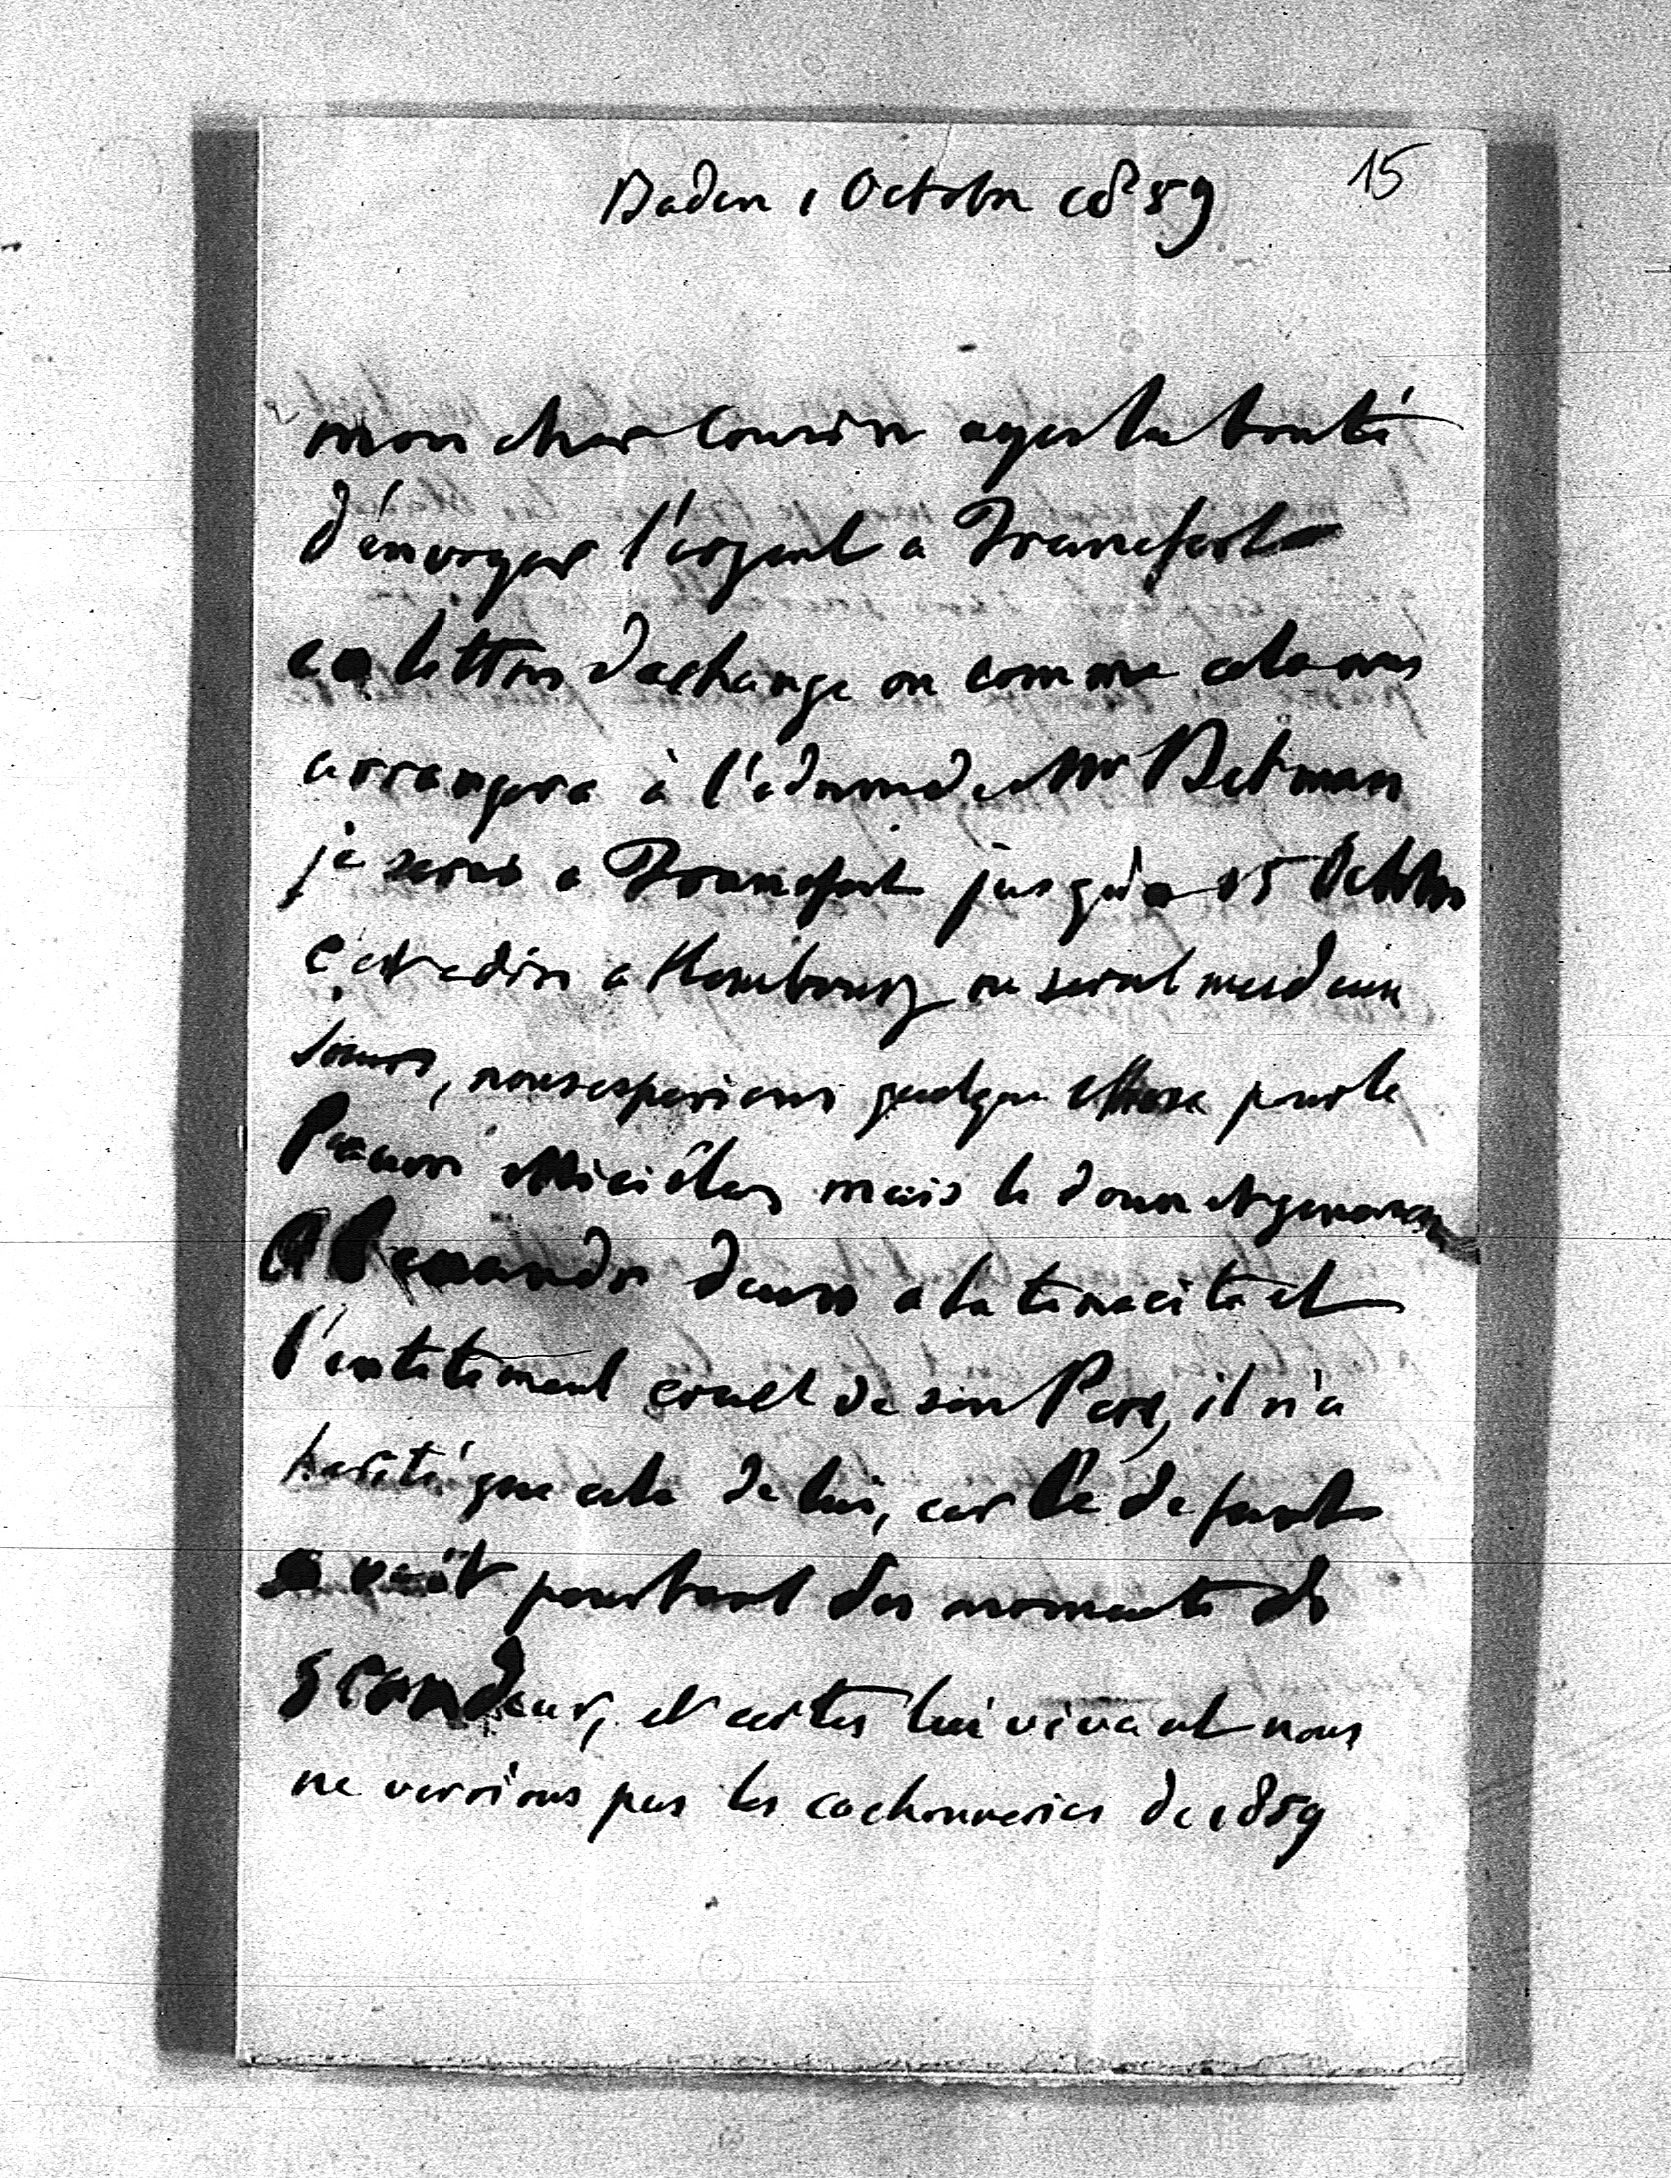 Baden 1 Octobre 1859
15
mon cher Cousin ayez la bonté
d'énvoyer l'argent a Francfort
en lettres d'echange ou comme cela vous
arrangera à l'adresse de Mr Betman
je serais a Francfort jusqu'a 15 Octobre
c'est adire a Hombourg ou seront mes deux
soeurs, nous esperions quelque chose pour le
Pauvre mais le doux et genereux
Alexandre deux a la tenacité et
l'entetement cruel de son Pere, il n'a
herité que cela de lui, car le defunt
avait pourtant des moments de
grandeur, et certes lui vivant nous
ne verrions pas les cochonneries de 1859